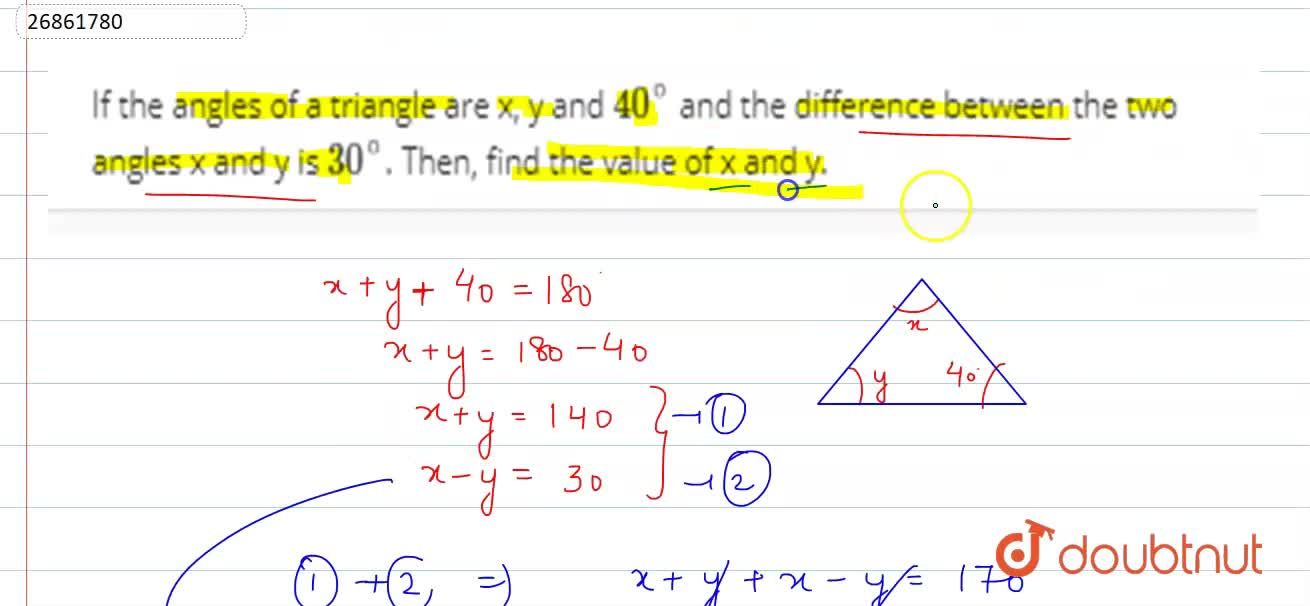 26861780
If the angles of a triangle are x, y and 40° and the difference between the two
angles x and y is 30°. Then, find the value of x and y.
x + y + 40 = 180
x + y = 180 - 40
x + y = 140 → ①
x - y = 30 → ②
x
y
40°
① + ②, ⇒ x + y + x - y = 170
doubtnut